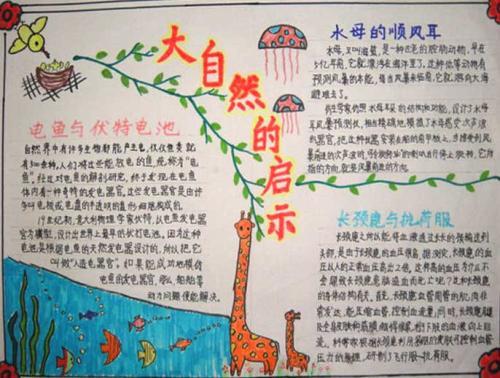 大自然的启示
电鱼与伏特电池
自然界中有许多生物都能产生电，仅仅鱼类就
有500余种。人们将这些能放电的鱼，统称为“电
鱼”。经过对电鱼的解剖研究，终于发现在电鱼
体内有一种奇特的发电器官。这些发电器官是由许
多叫电板或电盘的半透明的盘形细胞构成的。
19世纪初，意大利物理学家伏特，以电鱼发电器官
为模型，设计出世界上最早的伏打电池。因为这种
电池是根据电鱼的天然发电器设计的，所以把它
叫做“人造电器官”。如果能成功地模仿
电鱼的发电器官，那么，船舶等
动力问题便能解决。
水母的顺风耳
水母，又叫海蜇，是一种古老的腔肠动物，早在
5亿年前，它就漂浮在海洋里了。这种低等动物有
预测风暴的本能，每当风暴来临前，它就游向大海
避难去了。
仿生学家仿照水母耳朵的结构和功能，设计了水母
耳风暴预测仪，相当精确地模拟了水母感受次声波
的器官。把这种仪器安装在船的前甲板上，当接受到风
暴的次声波时，
指的方向，就是风暴前进的方向。
长颈鹿与抗荷服
长颈鹿之所以能将血液通过长长的颈输送到
头部，是由于长颈鹿的血压很高。据测定，长颈鹿的血
压比人的正常血压高出2倍。这样高的血压为什么不
会导致长颈鹿患脑溢血而死亡呢？这和长颈鹿
的身体结构有关。首先，长颈鹿血管周围的肌肉非
常发达，能压缩血管，控制血流量；同时，长颈鹿腿部
及全身的皮肤和筋膜绷得很紧，利于下肢的血液向上回
流。科学家根据长颈鹿利用紧绷的皮肤可控制血管
压力的原理，研制了飞行服—抗荷服。